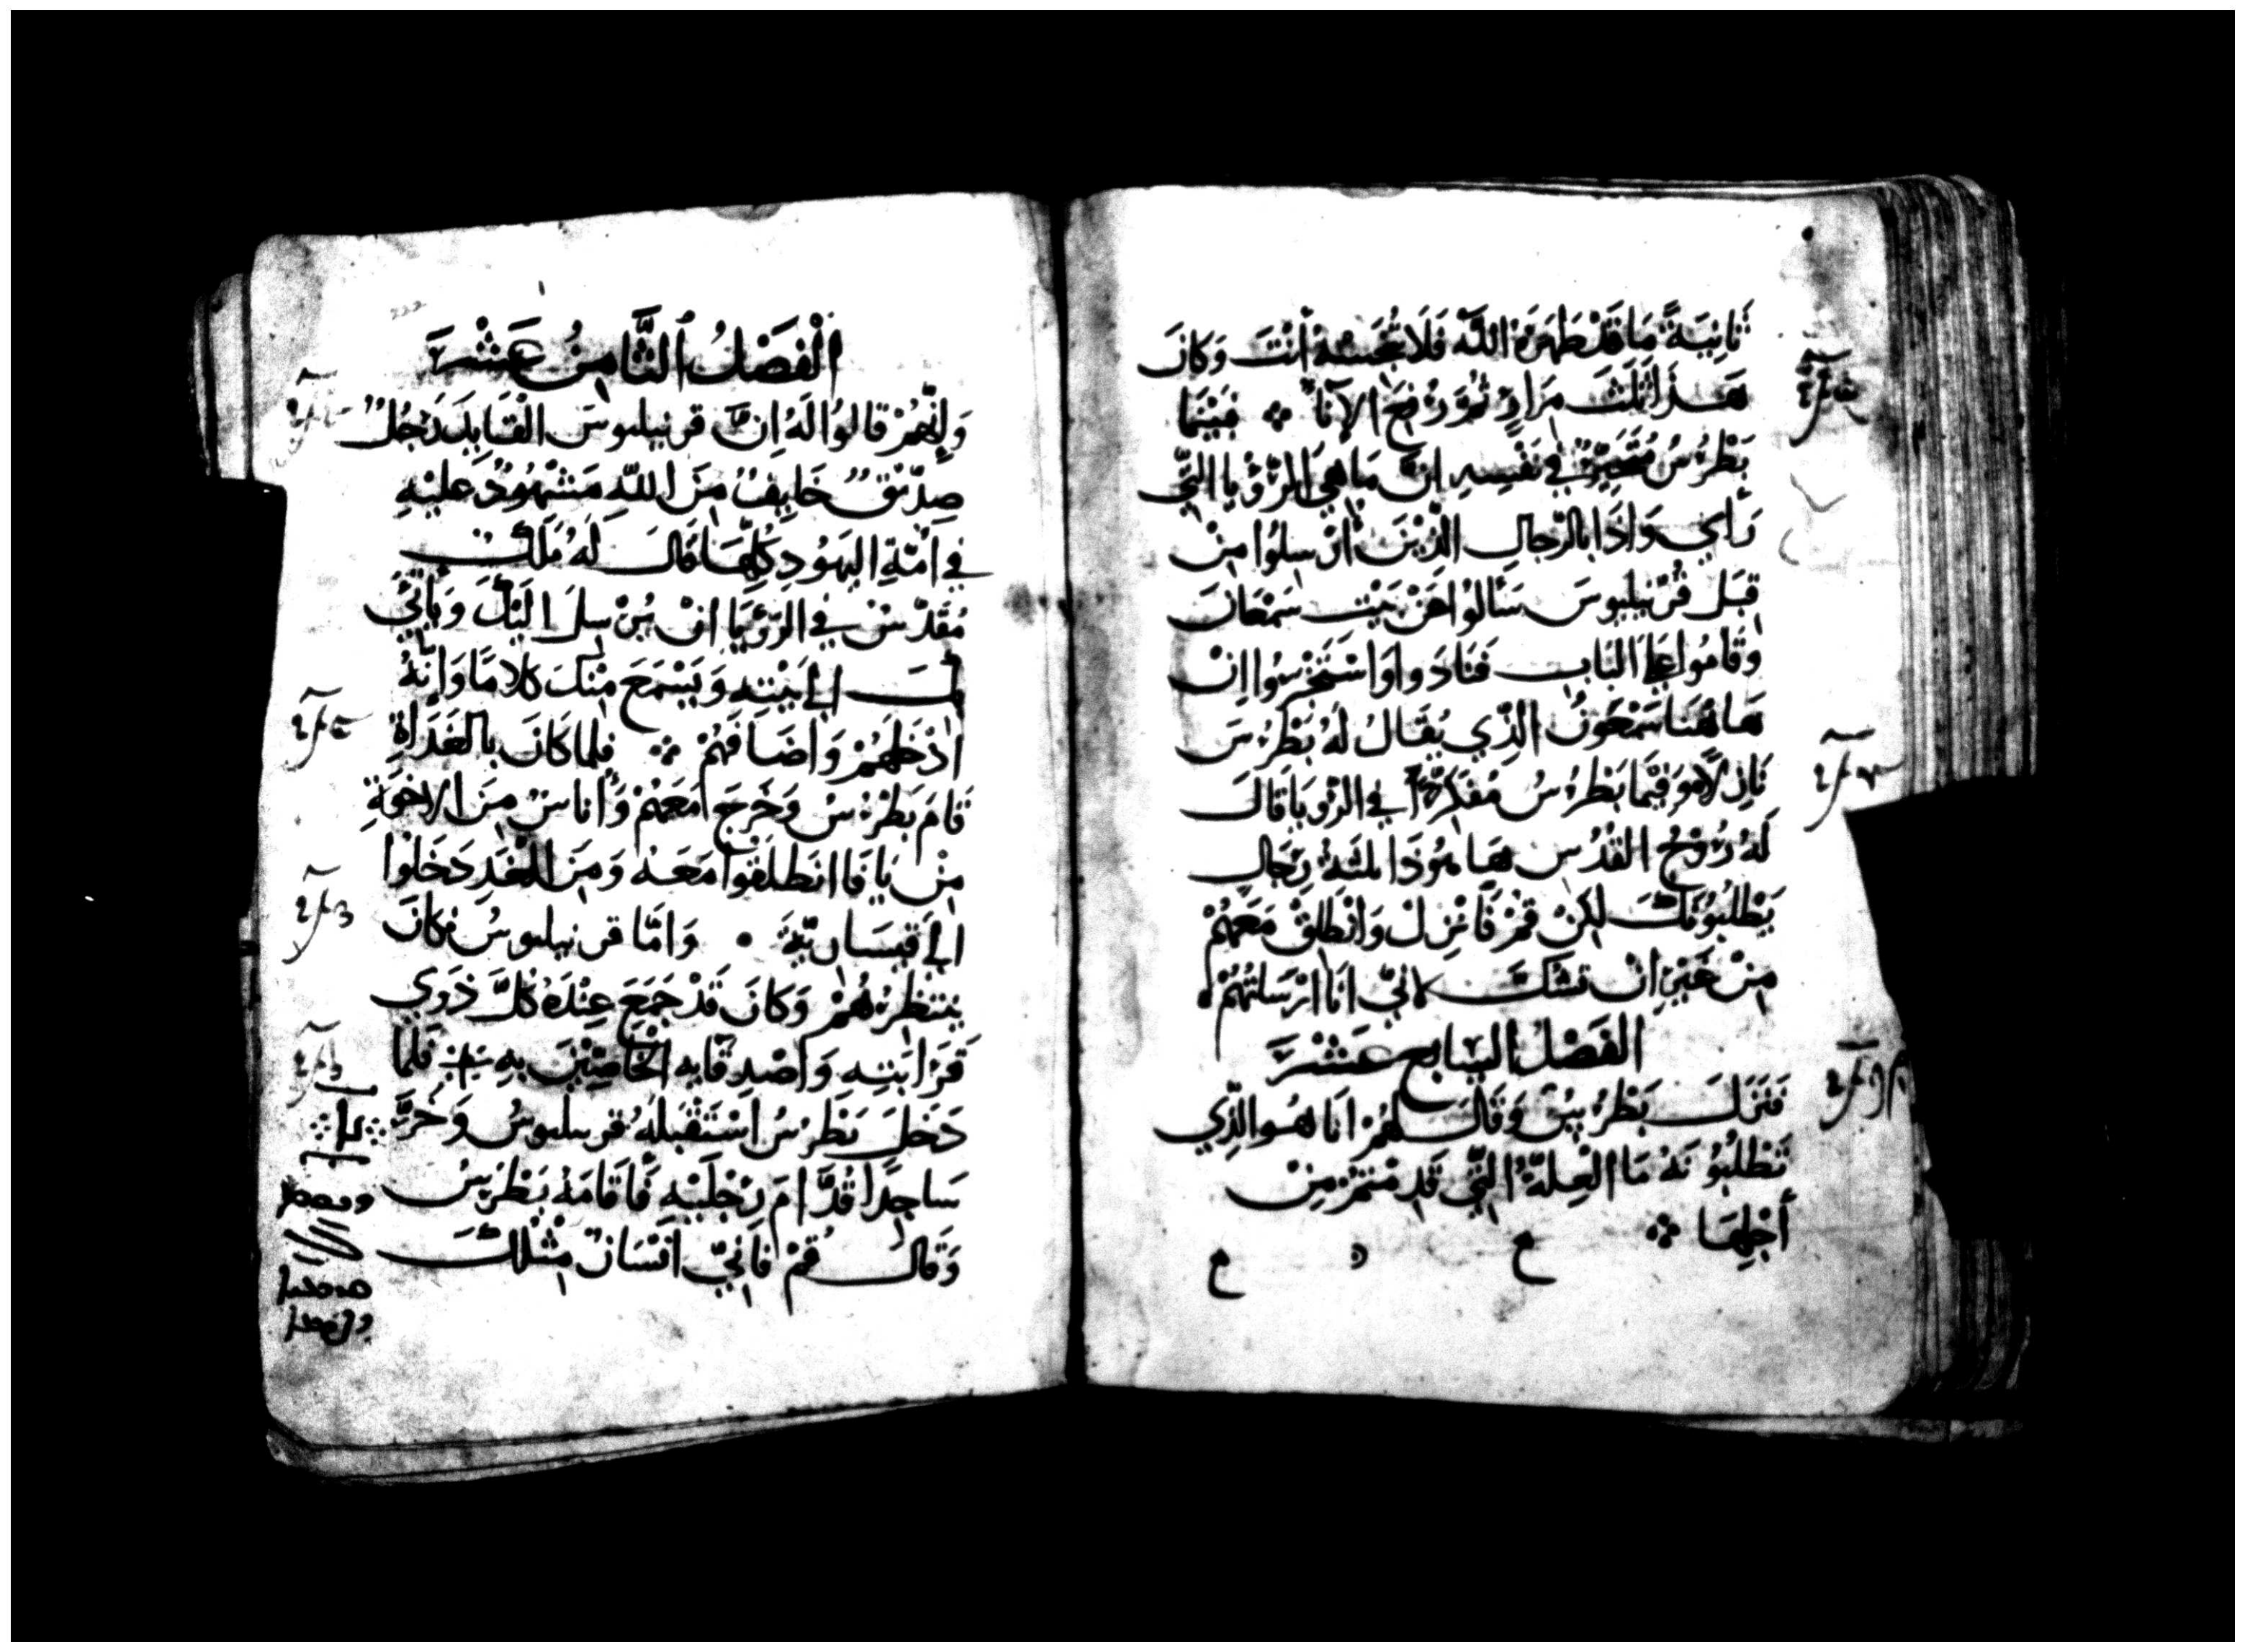 ثَانِيَةً مَا قَدْ طَهَرَهُ اللَّه فَلَا تُنَجِسْهُ أَنْتَ وَكَانَ
هَذَا ثَلَثَ مِرَارٍ ثُمَّ رُفِعَ الآنَآ ⁘ فَبَيْنَمَا
بَطْرُسُ مُتَحَيِّرٌ فِي نَفْسِهِ انَّ مَا هِيَ الرُؤْيا الَّتِي
رَأي وَاذَا بالرِجالِ الَّذِيْنَ أُرْسِلُوا مِنْ
قِبَل قُرْنيليوسَ سَأَلُوا عَنْ بَيْت سَمْعَانَ
وَقَامُوا عَلَى البَابِ فَنَادَوا وَاسْتَخْبَرُوا اِنْ
هَاهُنَا سَمْعَونُ الذِّي يُقَالُ لَهُ بَطْرُسَ
نَازِلاً هُوَ فِيْمَا بَطْرُسُ مُفَكِّرًا في الرُؤيَا قَالَ
لَهُ رُوْحُ القُدُسِ هَا هُوَذَا ثلثَة رِجَال
يَطْلُبُونَكَ لَكِنْ قُمْ فَأَنْزِلْ وَانْطَلِقْ مَعَهُمْ
مِنْ غَيْرِ انْ تشكَّ لانِّي انَا ارْسَلتُهُمْ
الفَصْلُ السَابع عَشْرَ
فَنَزَلَ بَطْرُسُ وَقَالَ لَهُمْ انَا هُو الذِّي
تَطْلُبُونَهُ مَا العِلَّةُ التَّي قَدِمْتُمْ مِنْ
أَجْلِهَا ⁘
الْفَصْلُ الثَّامِنُ عَشَرَ
وَإِنَّهُمْ قَالُوا لَهُ اِنَّ قرنيليوسَ القَايِدَ رَجُلٌ
صِدِّيْقٌ خَايِفٌ مِنَ اللَّهِ مَشْهُودٌ عَلَيْهِ
فِي اُمَّةِ اليَهُودِ كُلِّهَا قَالَ لَهُ مَلَكٌ
مُقَدَّسٌ فِي الرُؤيَا انْ يُرْسِلَ الَيْكَ وَيَأتِي
بِكَ الِى بَيْتِهِ وَيَسْمَعَ مِنْكَ كَلامًا وَانَّهُ
ادْخَلَهُمْ وَاضَافَهُمْ ⁘ فلما كَانَ بالغَدَاةِ
قَامَ بَطْرُسُ وَخَرَجَ مَعَهُمْ وَأُنَاسٌ مِنَ الاخوَةِ
مِنْ يَافَا انطَلَقوا مَعَهُ وَمِنَ الغَدِ دَخَلُوا
الِى قيسَاريَّة • وَامَّا قرنيليوسُ فكَانَ
يَنتَظِرُهُمْ وَكَانَ قَدْ جَمَعَ عِنْدَهُ كُلَّ ذَوِي
قَرَابَتِهِ وَاصْدِقَايِهِ الخَاصِّيْنَ بِهِ فَلَما
دَخَلَ بَطْرُسُ اسْتَقْبَلَهُ قرنيليوسُ وَخَرَّ
سَاجِدًا قُدَّامَ رِجْلَيْهِ فَأَقَامَهُ بَطْرُسُ
وَقَالَ قُمْ فَانِيِّ انْسَانٌ مِثْلكَ